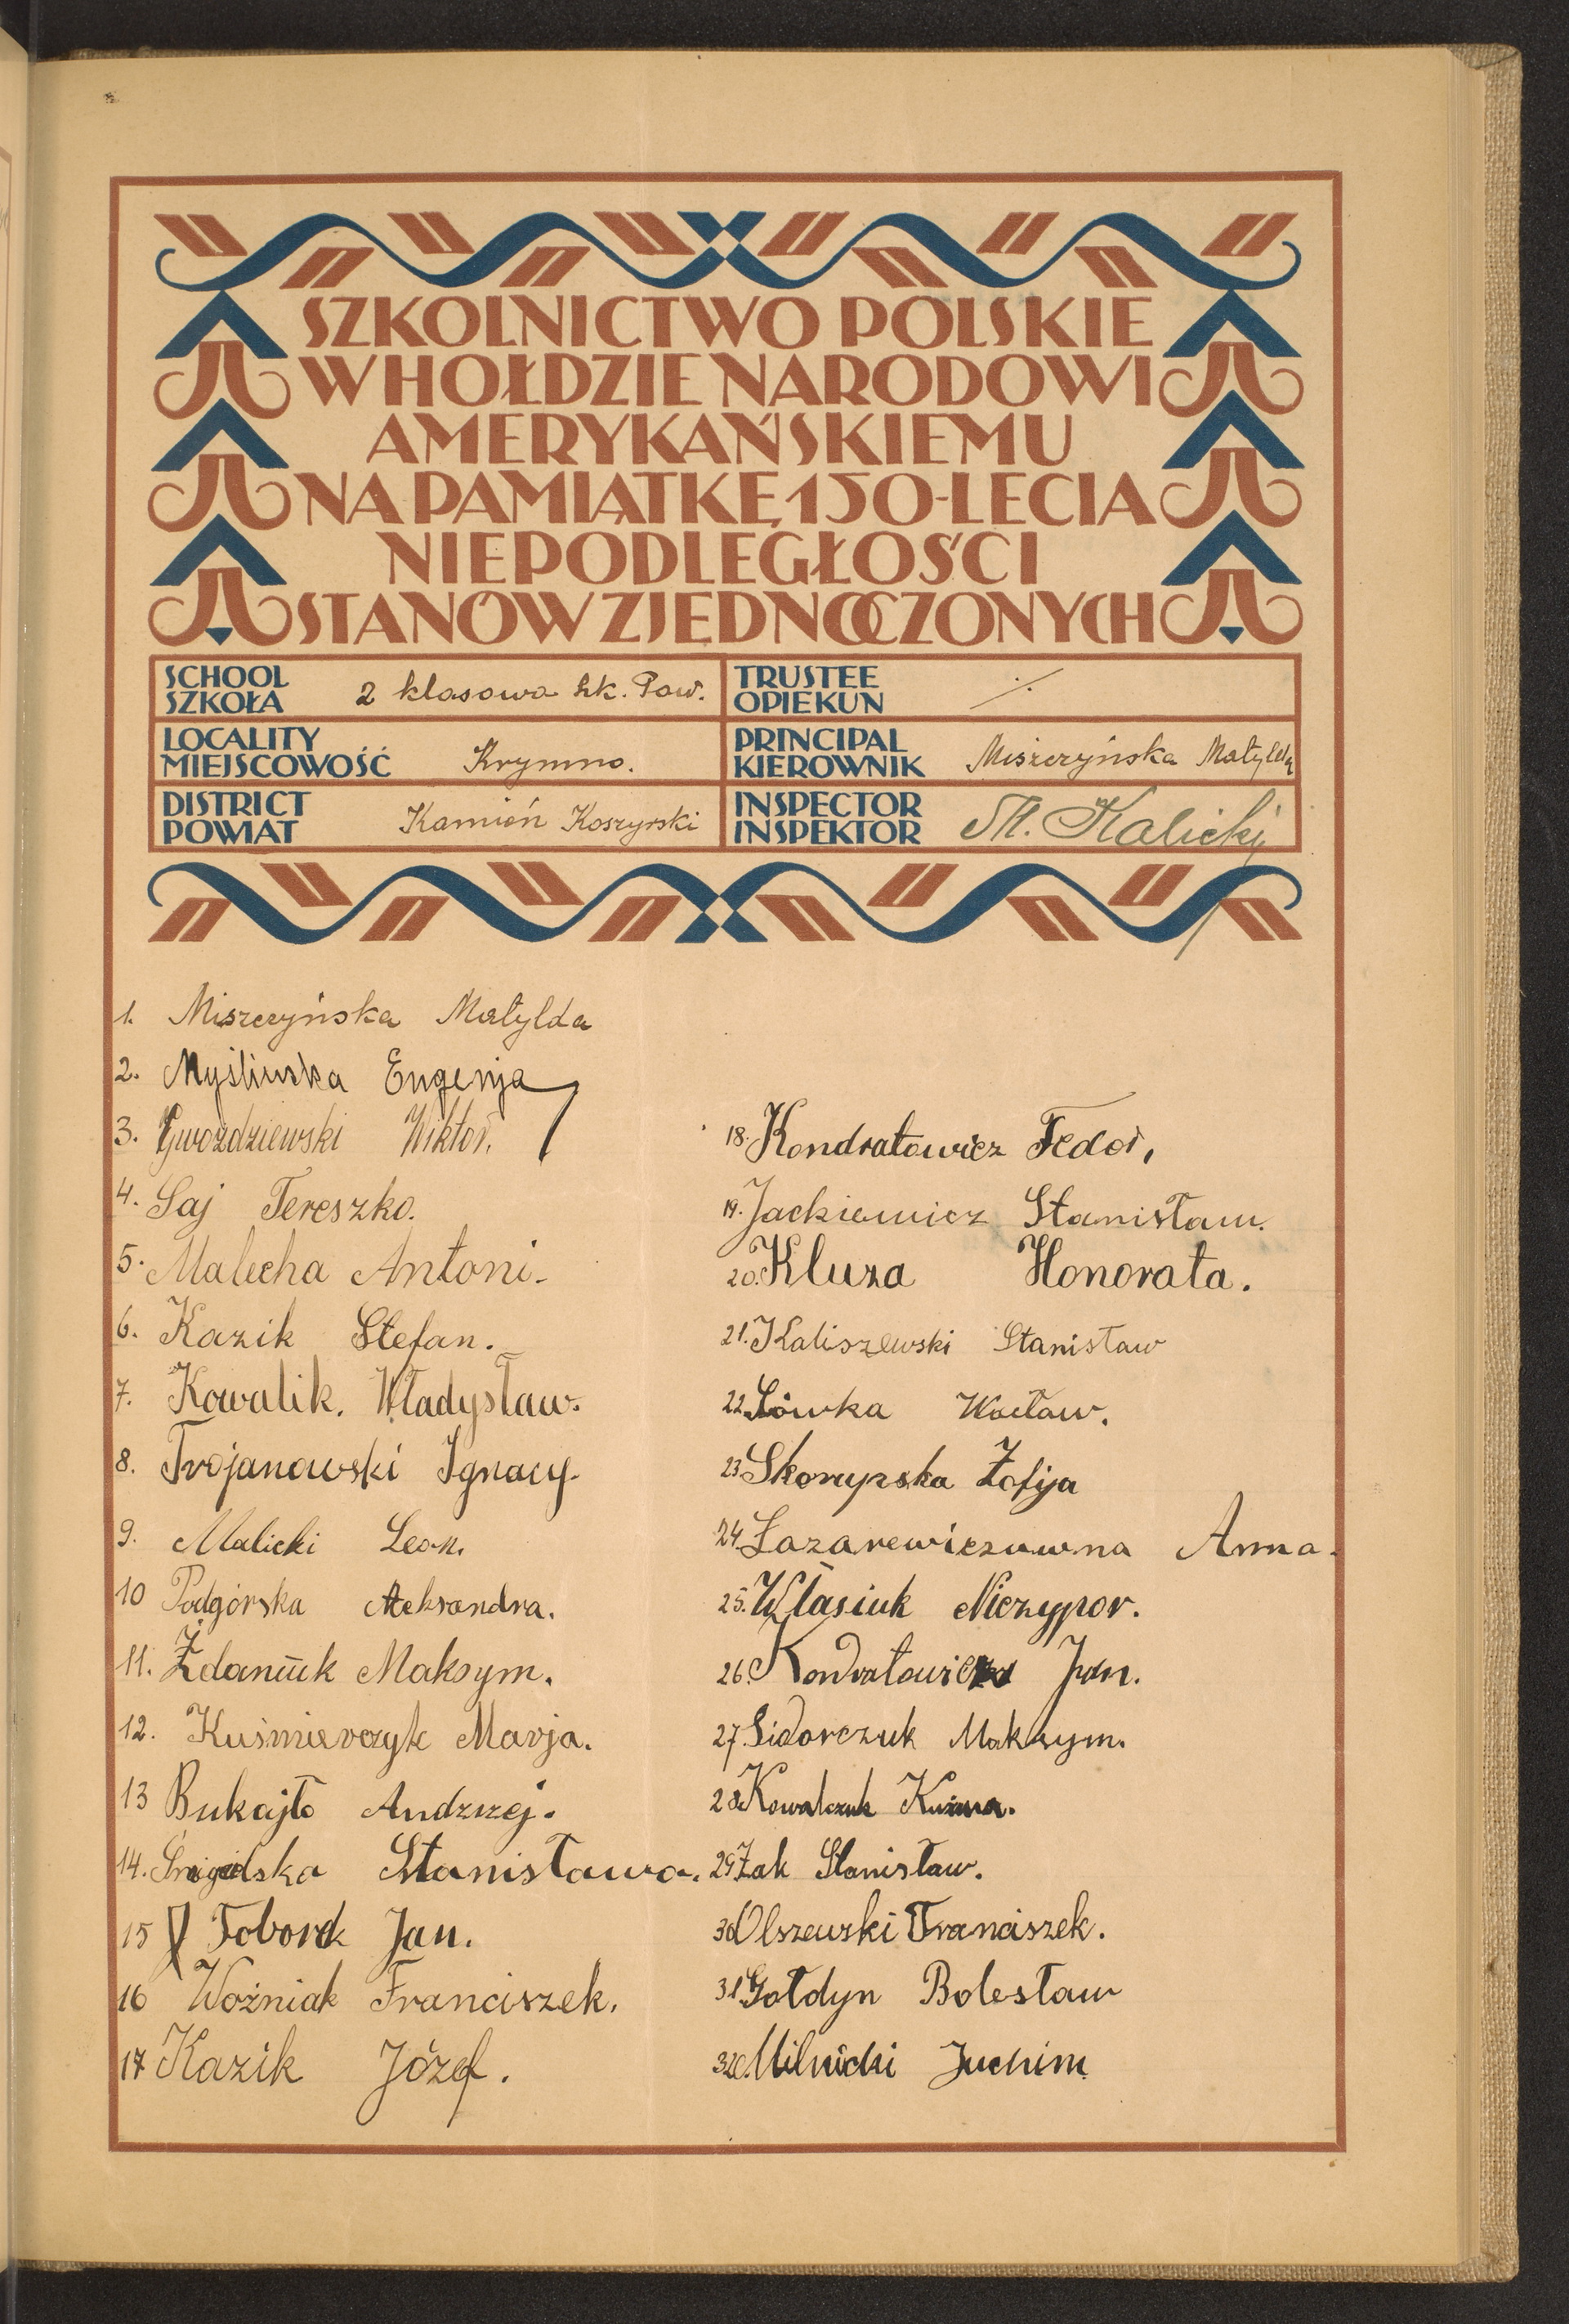 SZKOLNICTWO POLSKIE
W HOŁDZIE NARODOWI
AMERYKAŃSKIEMU
NA PAMIĄTKĘ 150-LECIA
NIEPODLEGŁOŚCI
STANÓW ZJEDNOCZONYCH
SCHOOL
SZKOŁA 2 klasowa szk. Pow.
TRUSTEE
OPIEKUN ·/·
LOCALITY
MIEJSCOWOŚĆ Krymno.
PRINCIPAL
KIEROWNIK Miszczyńska Matylda
DISTRICT
POWIAT Kamień Koszyrski
INSPECTOR
INSPEKTOR M. Kalicki
1. Miszczyńska Matylda
2. Myśliwska Eugenja
3. Gwoździewski Wiktor.
4. Saj Tereszko.
5. Malecha Antoni.
6. Kazik Stefan.
7. Kowalik. Władysław.
8. Trojanowski Ignacy.
9. Malicki Leon.
10 Podgórska Aleksandra.
11. Żdaniuk Maksym.
12. Kuśmierczyk Marja.
13 Bukajło Andrzej.
14. Stanisława.
15 Toborek Jan.
16 Woźniak Franciszek.
17 Kazik Józef.
18. Kondratowicz Fedor,
19. Jackiewicz Stanisław.
20. Kluza Honorata.
21. Kaliszewski Stanisław
22. Sówka Wacław.
23. Skorupska Zofija
24. Łazarewiczuwna Anna.
25. Własiuk Niczypor.
26. Kondratowicz Jan.
27. Sidorczuk Maksym.
28. Kowalczuk Kuźma.
29 Żak Stanisław.
30 Olszewski Franciszek.
31 Gołdyn Bolesław
32. Milnicki Juchim